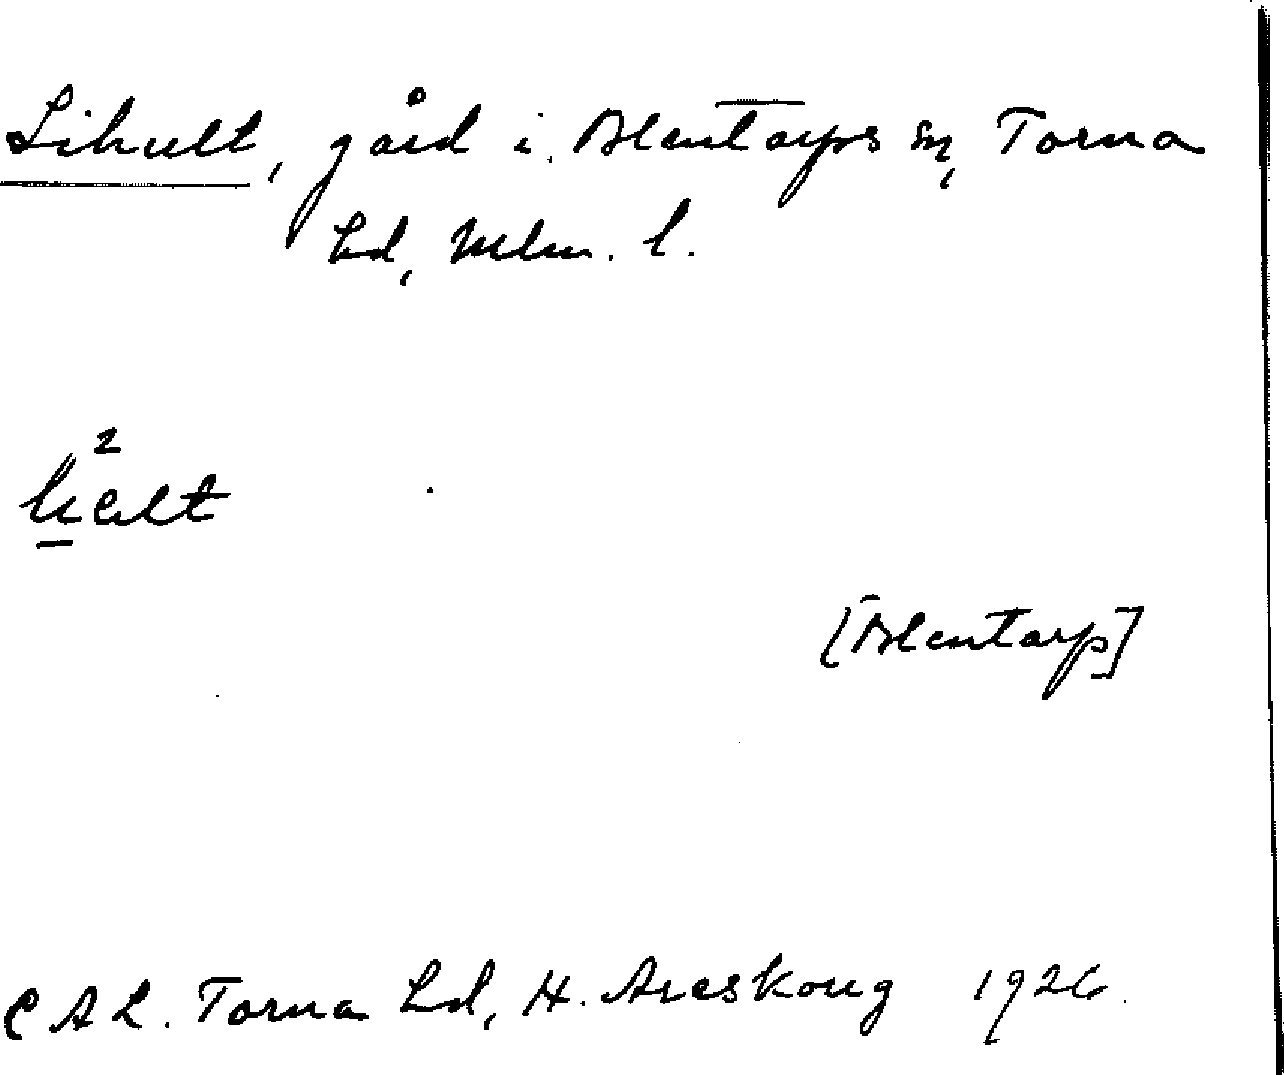 Lihult, gård i. Blentarps sn, Torna
hd, Mlm. l.
[Blentarp]
CAL. Torna hd, H. Areskoug 1926.